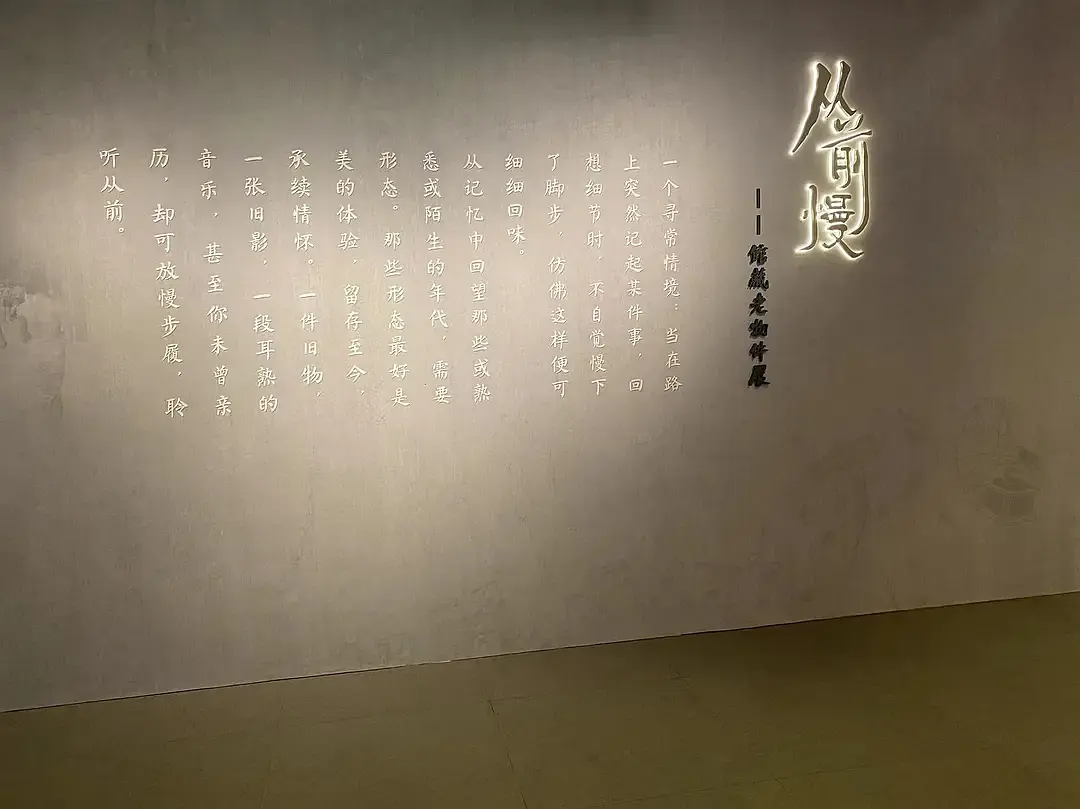 从前慢
——館藏老物件展
一个寻常情境：当在路
上突然记起某件事，回
想细节时，不自觉慢下
了脚步，仿佛这样便可
细细回味。
从记忆中回望那些或熟
悉或陌生的年代，需要
形态。那些形态最好是
美的体验，留存至今，
承续情怀。一件旧物，
一张旧影，一段耳熟的
音乐，甚至你未曾亲
历，却可放慢步履，聆
听从前。